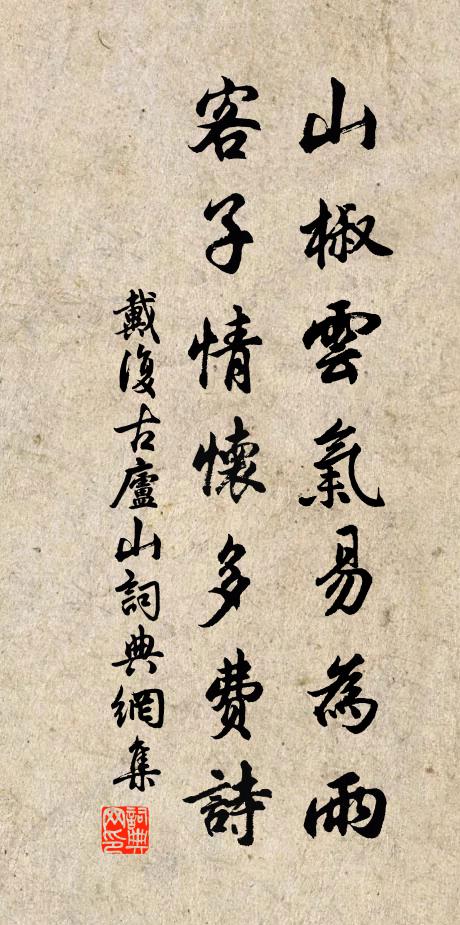 山椒雲氣易為雨
客子情懷多費詩
戴復古廬山詞典網集
詞典
网印